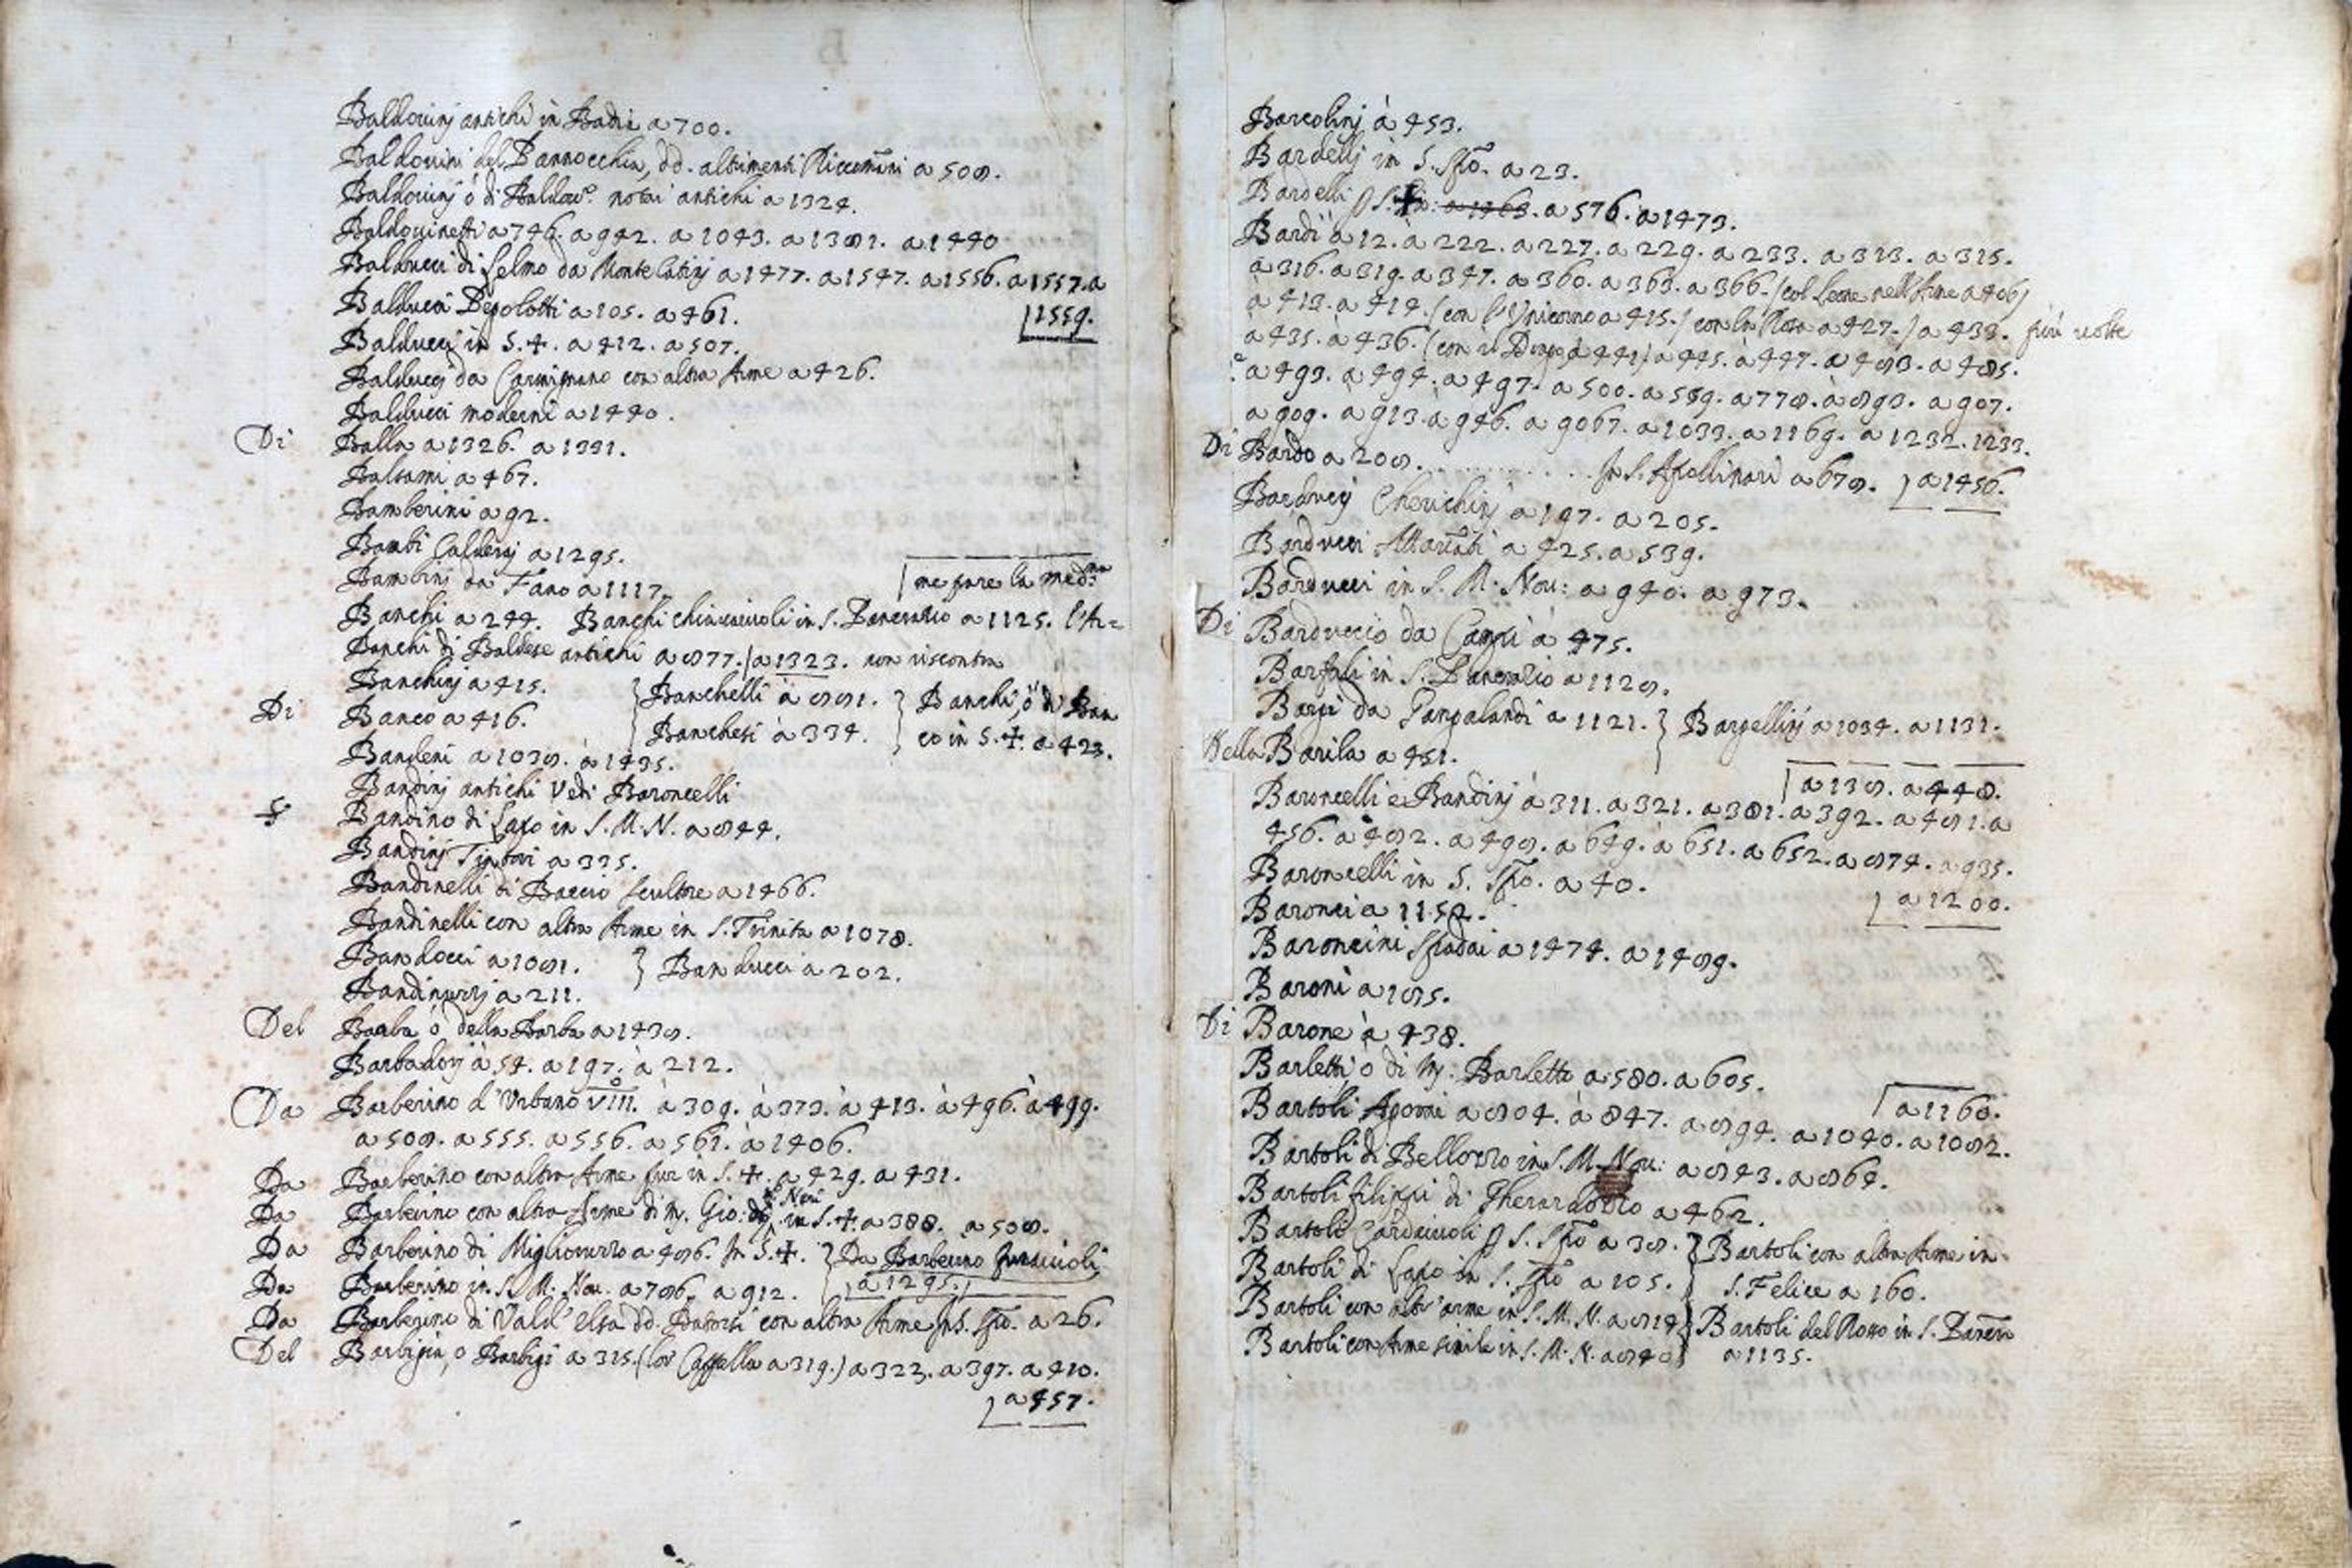 Baldovinj antichi in Badia a 700.
Baldovini del Pannocchia, dd. altrimenti Riccomãni a 508.
Baldovinj ò di Baldovo. notai antichi a 1324.
Baldovinetti a 746. a 942. a 1043. a 1381. a 1440
Balducci di Selmo da Monte Catinj a 1477. a 1547. a 1556. a 1557. a
1559.
Balducci Pegolotti a 105. a 461.
Balducci in S. +. a 412. a 507.
Balduccj da Carmignano con altra Arme a 426.
Balducci moderni a 1440.
Di Balla a 1326. a 1331.
Balsami a 467.
Bamberini a 92.
Bambi a 1295.
Bambinj da Fano a 1117.
me pure la medma
Banchi a 244. Banchi chiaraiuoli in S. Pancrazio a 1125. l'Ar=
Banchi di Baldese antichi a 877. / a 1323. con riscontra
Banchinj a 415. } Banchelli à 881. } Banchi, ò di Ban
Di Banco a 416. Banchesi à 334. co in S. +. a 423.
Bandeni a 1038. à 1435.
Bandinj antichi Vedi Baroncelli
Bandino di Lapo in S. M. N. a 844.
Bandinj Tintori a 335.
Bandinelli di Baccio scultore a 1466.
Bandinelli con altra Arme in S. Trinita a 1078.
Bandocci a 1081. } Banducci a 202.
a 211.
Del Barba ò della Barba a 1438.
Barbadorj à 54. a 197. à 212.
Da Barberino d'Urbano VIII. à 309. à 373. à 413. à 496. à 499.
a 508. a 555. a 556. a 561. à 1406.
Da Barberino con altra Arme pur in S. +. a 429. a 431.
Da Barberino con altra Arme di m. Gio: in S. + a 388. a 508.
Da Barberino di Migliorozzo a 486. In S. +. } Da Barberino
Da Barberino in S. M. Nou. a 786. a 912. a 1295.
Da Barberino di Vald'elsa dd. con altra Arme In S. Spõ. a 26.
Del Barbigia, o Barbigi a 315. (lor Cappella a 319.) a 322. a 397. a 410.
a 457.
Barcolinj à 453.
Bardellj in S. Spõ. a 23.
Bardelli a 1463. a 576. a 1473.
Bardi a 12. à 222. a 227. a 229. a 233. a 313. a 315.
a 316. a 319. a 347. a 360. a 363. a 366. (col Leone nell'Arme a 406)
a 413. a 414. (con l'Unicorno a 415.) con la Rosa a 427.) a 433. più uolte
a 435. à 436. (con il Drago à 441) a 445. à 447. a 483. a 485.
a 493. à 494. a 497. a 500. a 559. a 778. à 893. a 907.
a 909. à 913. à 946. a 9067. a 1033. a 1169. a 1232. 1233.
Di Bardo a 208. . . . . . . . . In S. Apollinari a 678. a 1456.
Barduccj Cherichinj a 197. a 205.
Barducci Attavãti a 425. a 539.
Barducci in S. M. Nou: a 940. a 973.
Di Barduccio da Campi à 475.
in S. Pancrazio a 1128.
Bargi da Gangalandi a 1121. } Bargellinj a 1034. a 1131.
Della Barila a 451.
a 138. a 448.
Baroncelli e Bandinj à 311. a 321. a 381. a 392. a 481. a
456. a 482. a 498. a 649. à 651. a 652. a 874. a 935.
a 1200.
Baroncelli in S. Spõ. a 40.
Baronci a 1152.
Baroncini Spadai a 1474. a 1489.
Baroni a 185.
Di Barone à 438.
Barletti ò di m. Barletto a 580. a 605.
a 1160.
Bartoli Agomi a 804. à 847. a 894. a 1040. a 1082.
Bartoli di Bellozzo in S. M. Nou: a 843. a 864.
Bartoli filippi di Gherardozzo a 462.
Bartoli Cardaiuoli S. Spõ a 38. } Bartoli con altra Arme in
Bartoli di Lapo in S. Spõ a 105. S. Felice a 160.
Bartoli con altr'arme in S. M. N. a 814 } Bartoli del Rosso in S. Pancra
Bartoli con Arme simile in S. M. N. a 840 a 1135.